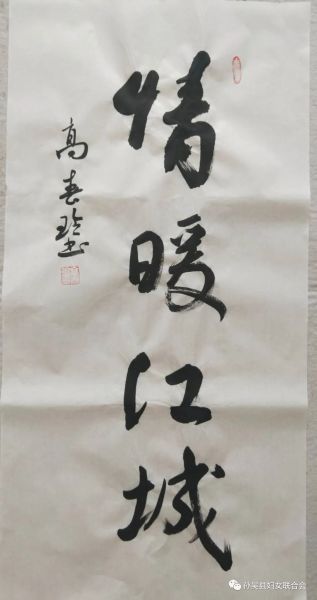 情暖江城
高春玲书
孙吴县妇女联合会